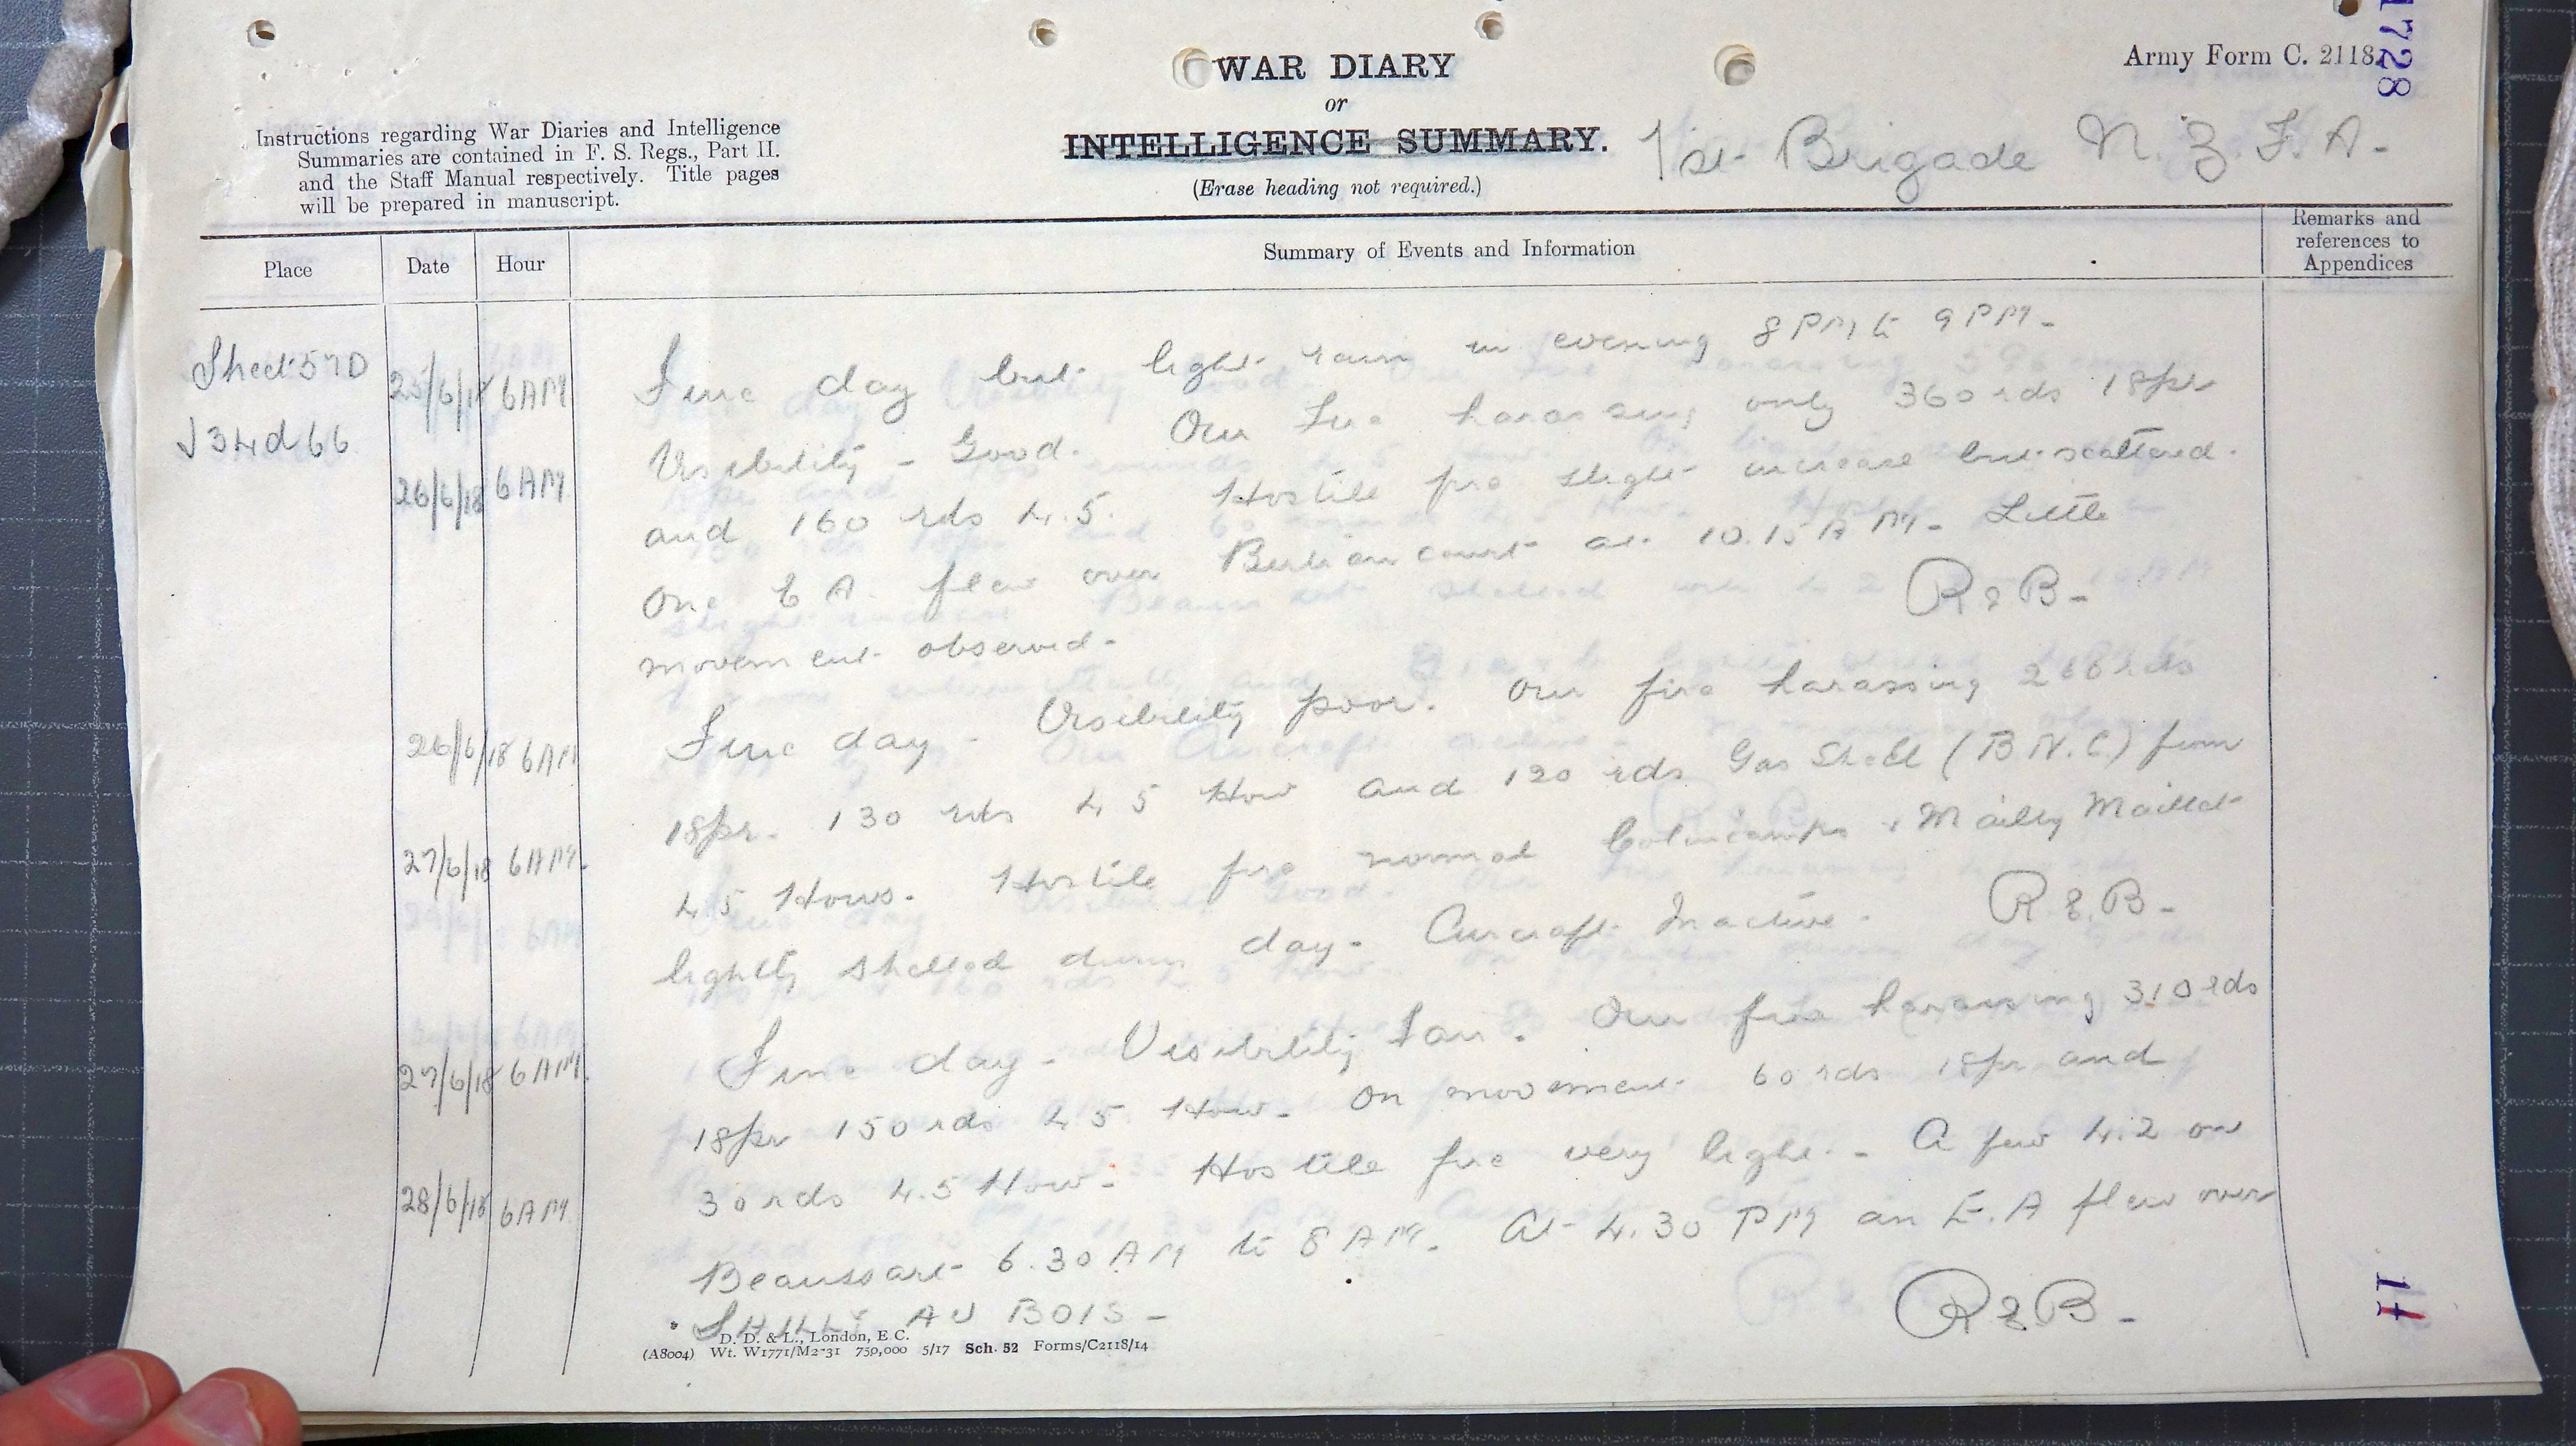 1728
Army Form C. 2118.
WAR DIARY
or
INTELLIGENCE SUMMARY.
(Erase heading not required.)
1st Brigade N.Z.F.A.
Instructions regarding War Diaries and Intelligence
Summaries are contained in F. S. Regs., Part II.
and the Staff Manual respectively. Title pages
will be prepared in manuscript.
Place Date Hour Summary of Events and Information Remarks and references to Appendices
Sheet 57D
J34d66
25/6/18 6AM
26/6/18 6AM
Fine day but light rain in evening 8PM to 9PM-
Visibility - Good. Our Fire harassing only 360 rds 18pr
and 160 rds 4.5. Hostile fire slight increase but scattered.
One E A. flew over Bertrancourt at 10.15 AM- Little
movement observed-
R E B-
26/6/18 6AM
27/6/18 6AM-
Fine day- Visibility poor. Our fire harassing 260 rds
18pr- 130 rds 4 5 How and 120 rds Gas Shell (B N.C) from
4.5 Hows. Hostile fire normal Colincamps & Mailly Maillet
lightly shelled during day- Aircraft Inactive-
R.E.B-
27/6/18 6AM
28/6/18 6AM
Fine day- Visibility Fair. Our fire harassing 310 rds
18pr 150 rds 4 5 How- On movement 60 rds 18pr and
30 rds 4.5 How- Hostile fire very light- A few 4.2 on
Beaussart- 6.30 AM to 8 AM. At 4.30 PM an E.A flew over
AU BOIS-
R E B-
11
D. D. & L., London, E.C.
(A8004) Wt. W1771/M2-31 750,000 5/17 Sch. 52 Forms/C2118/14